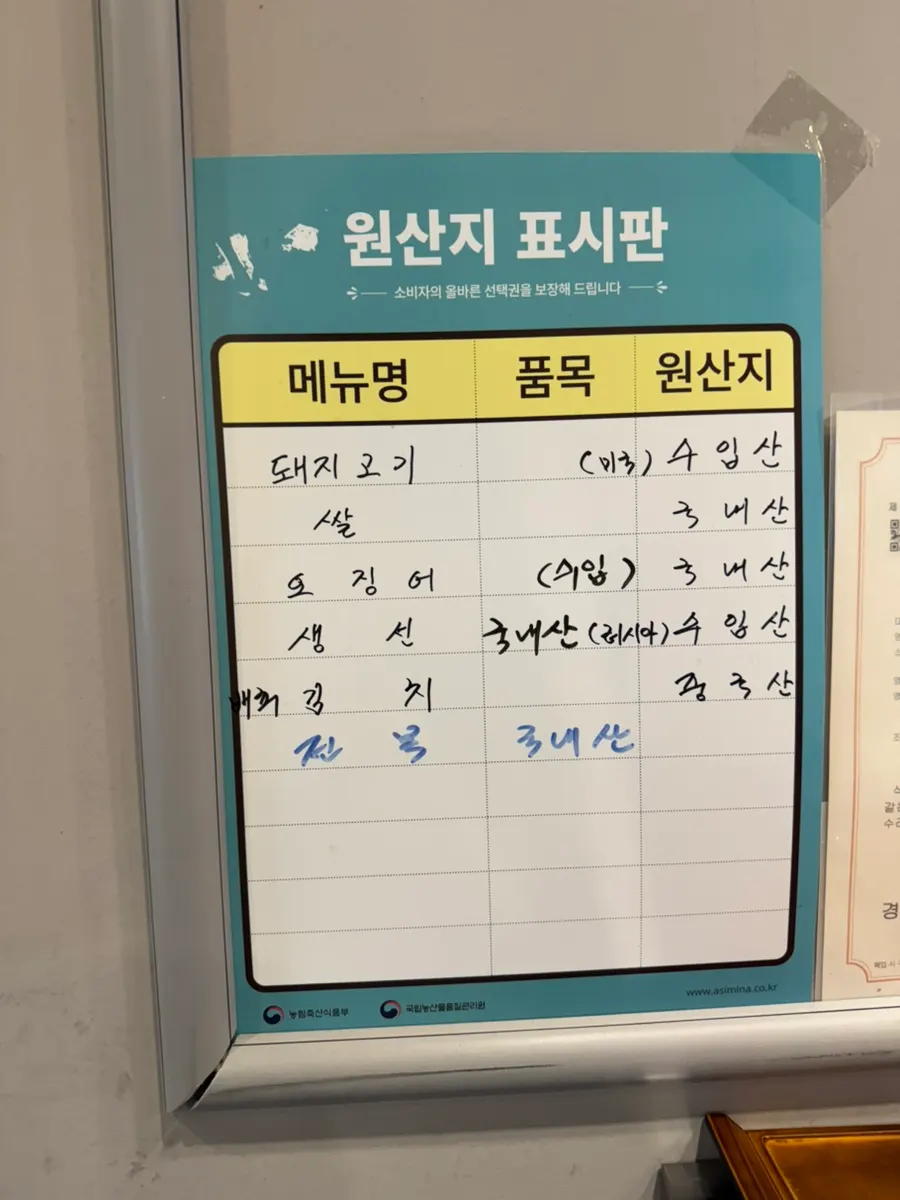 원산지 표시판
소비자의 올바른 선택권을 보장해 드립니다
메뉴명 품목 원산지
돼지고기 (미국) 수입산
쌀 국내산
오징어 (수입) 국내산
생선 국내산 (러시아) 수입산
배추 김치 중국산
전복 국내산
농림축산식품부 국립농산물품질관리원
www.asimina.co.kr
제
조
같은
수리
경